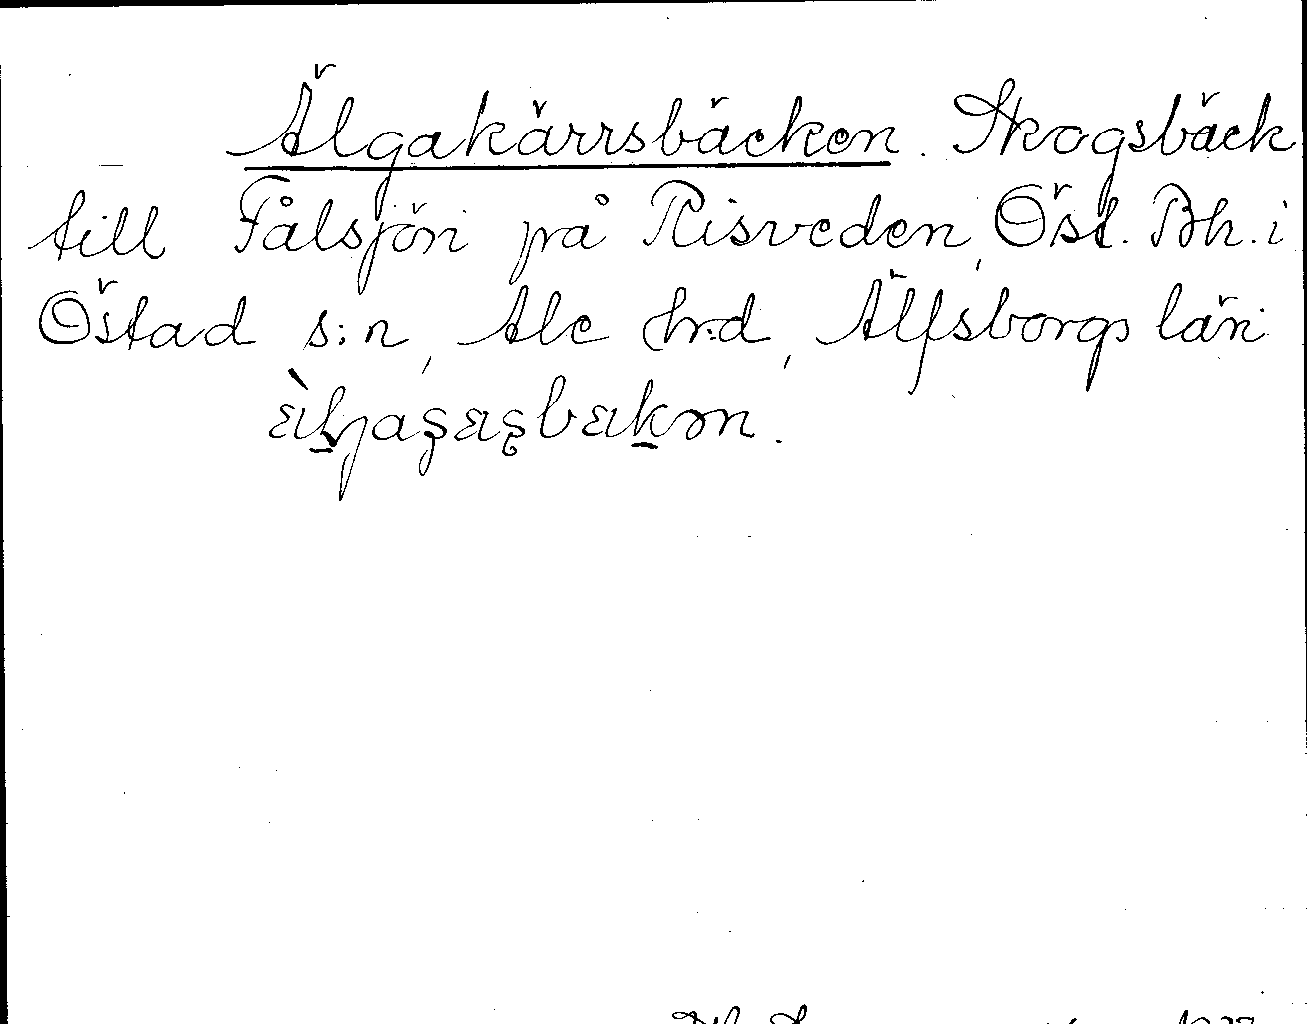 Älgakärrsbäcken. Skogsbäck
till Fålsjön på Risveden, Öst. Bh. i
Östad s:n, Ale hrd, Älfsborgs län